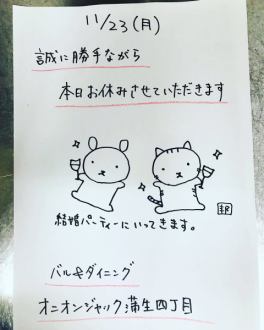 11/23(月)
誠に勝手ながら
本日お休みさせていただきます
結婚パーティーにいってきます。
バル&ダイニング
オニオンジャック蒲生四丁目